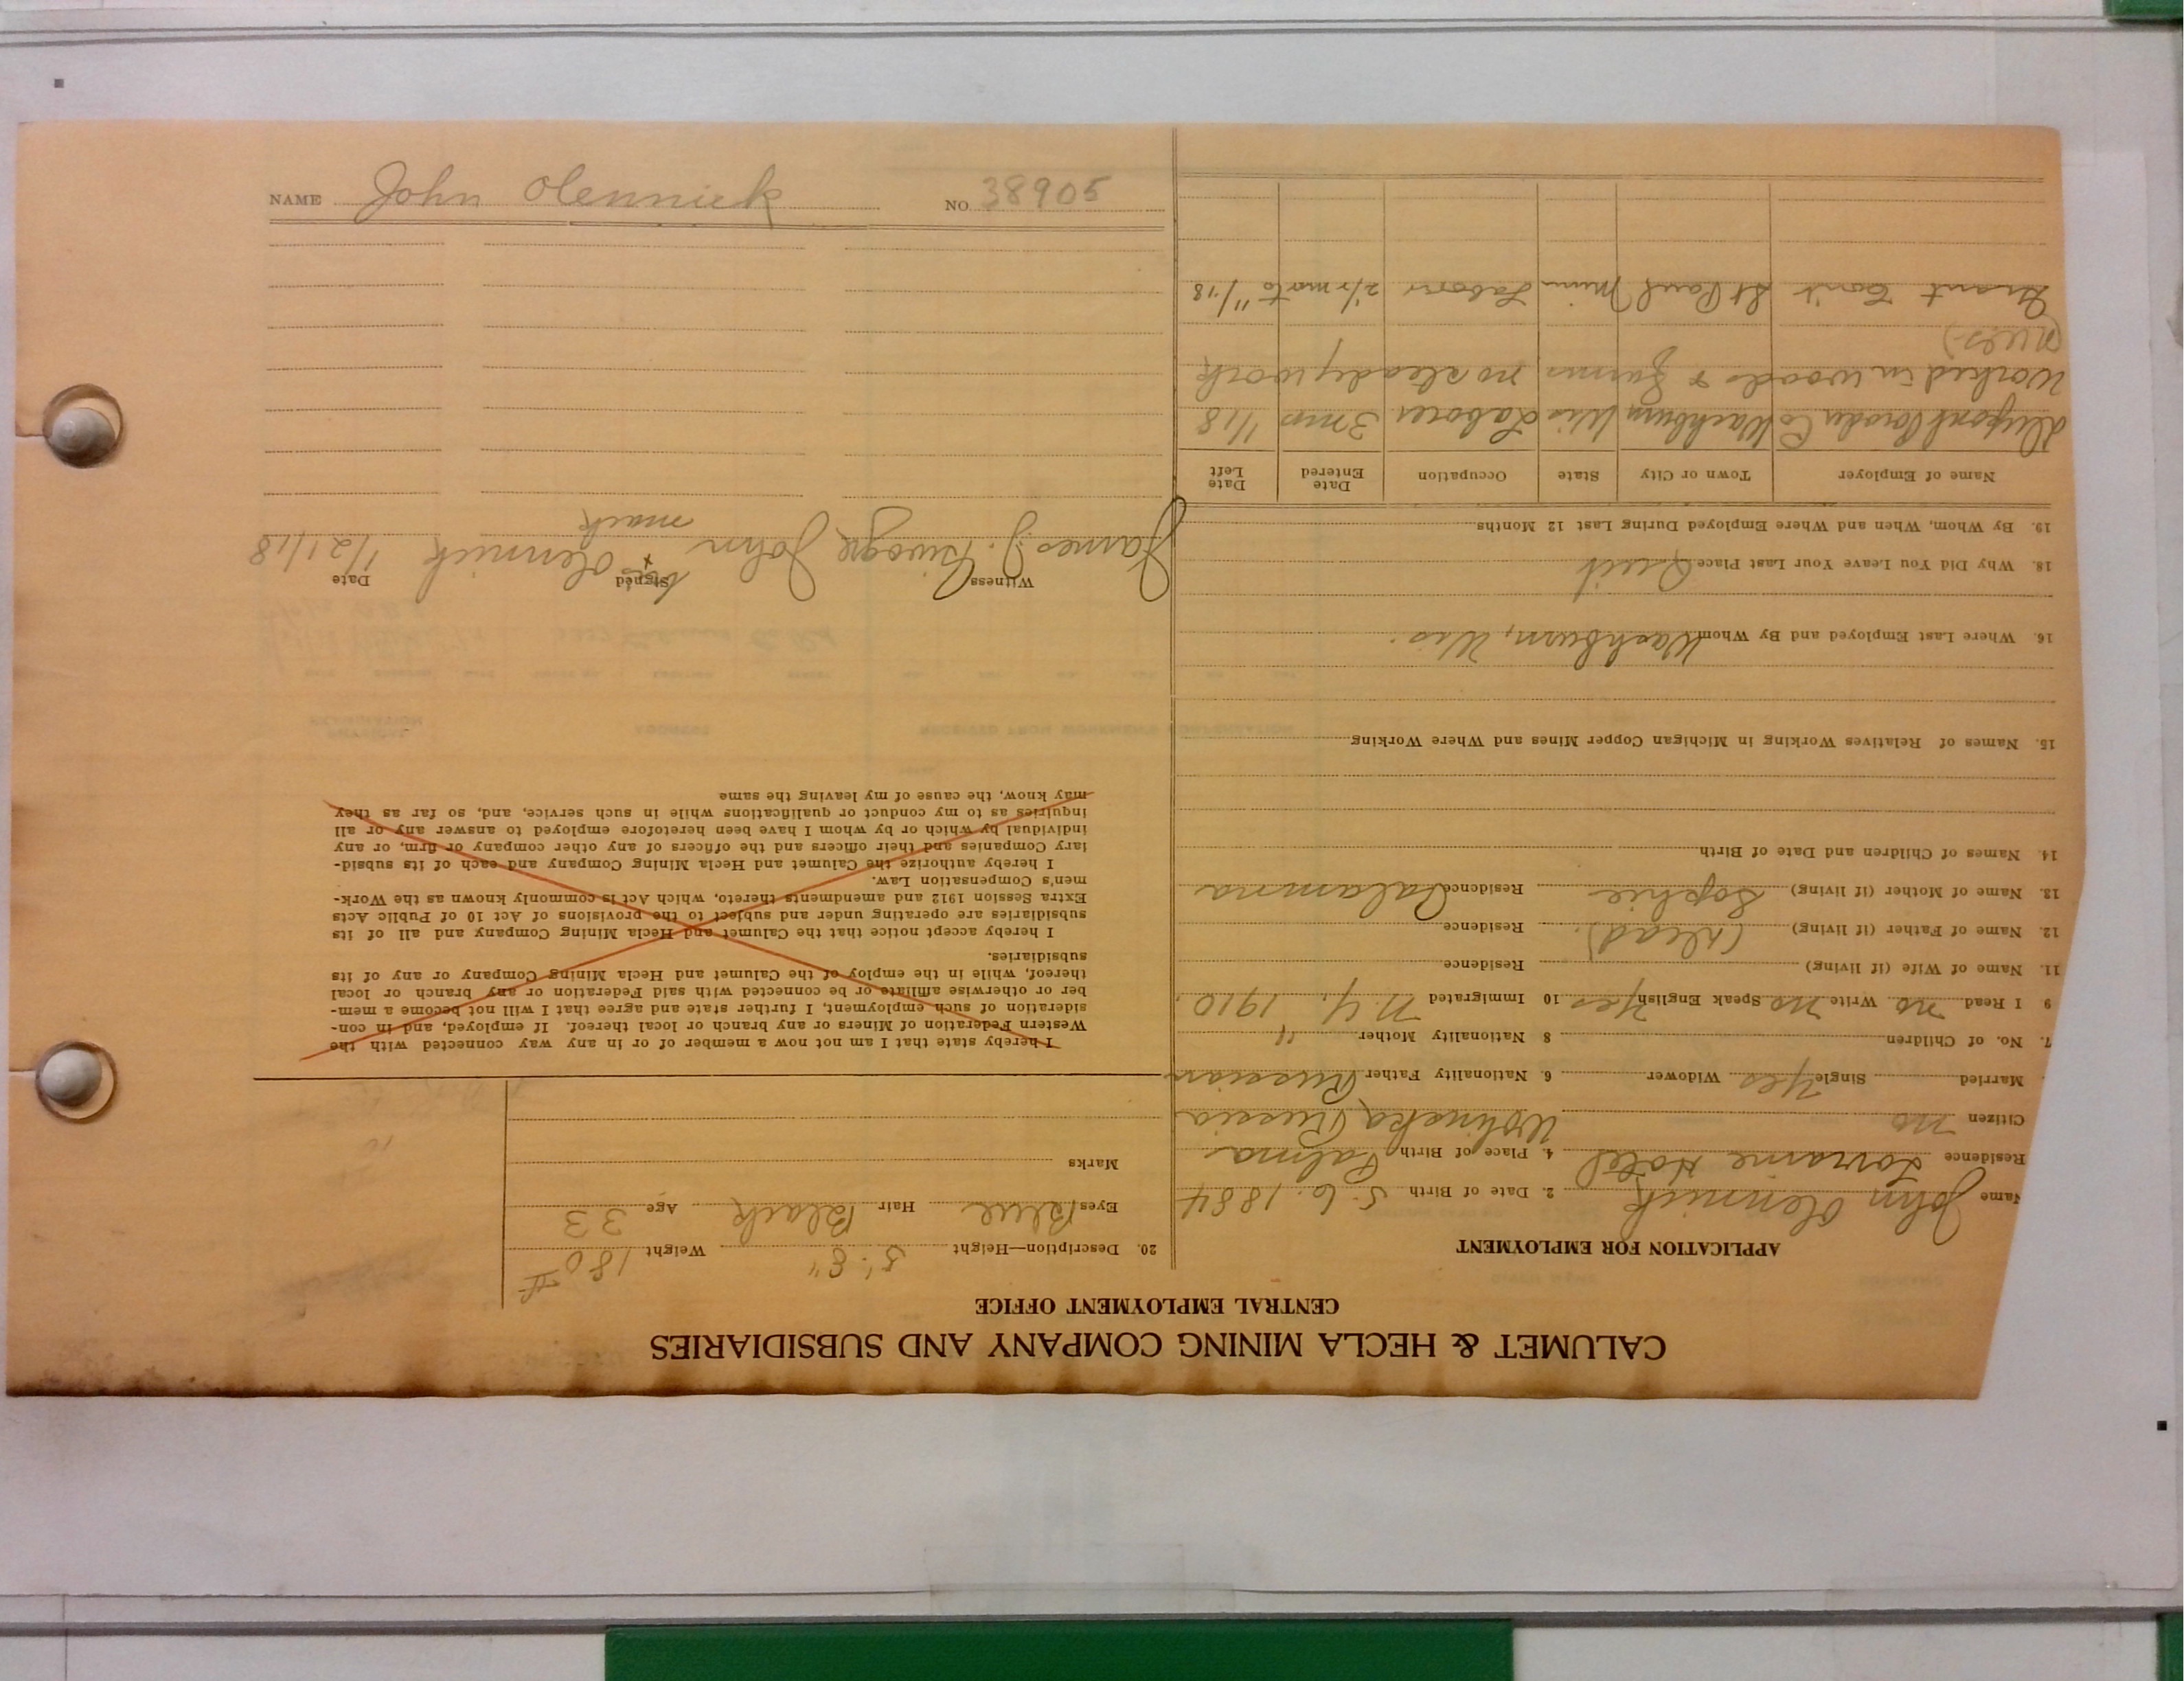 CALUMET & HECLA MINING COMPANY AND SUBSIDIARIES
CENTRAL EMPLOYMENT OFFICE
APPLICATION FOR EMPLOYMENT
Name John Olennick 2. Date of Birth 5.6.1884
Residence Lorraine Hotel 4. Place of Birth
Citizen no Wolinska, Russia
Married Single Yes Widower 6. Nationality Father Russian
7. No. of Children 8 Nationality Mother "
9 I Read no Write no Speak English Yes 10 Immigrated N.Y. 1910.
11. Name of Wife (if living) Residence
12. Name of Father (if living) (dead). Residence
13. Name of Mother (if living) Sophie Residence
14. Names of Children and Date of Birth
15. Names of Relatives Working in Michigan Copper Mines and Where Working
16. Where Last Employed and By Whom Washburn, Wis.
18. Why Did You Leave Your Last Place Quit
19. By Whom, When and Where Employed During Last 12 Months
Name of Employer Town or City State Occupation Date Entered Date Left
Dupont Powder Co Washburn Wis Laborer 3 mos 1/18
Worked in woods & farms no steady work
St Paul Minn Laborer 2 1/2 mo to 11/18
20. Description—Height 5'.8" Weight 180 #
Eyes Blue Hair Black Age 33
Marks
I hereby state that I am not now a member of or in any way connected with the
Western Federation of Miners or any branch or local thereof. If employed, and in con-
sideration of such employment, I further state and agree that I will not become a mem-
ber or otherwise affiliate or be connected with said Federation or any branch or local
thereof, while in the employ of the Calumet and Hecla Mining Company or any of its
subsidiaries.
I hereby accept notice that the Calumet and Hecla Mining Company and all of its
subsidiaries are operating under and subject to the provisions of Act 10 of Public Acts
Extra Session 1912 and amendments thereto, which Act is commonly known as the Work-
men's Compensation Law.
I hereby authorize the Calumet and Hecla Mining Company and each of its subsid-
iary Companies and their officers and the officers of any other company or firm, or any
individual by which or by whom I have been heretofore employed to answer any or all
inquiries as to my conduct or qualifications while in such service, and, so far as they
may know, the cause of my leaving the same
Witness Signed Date
James J. John his x Olennick 1/21/18
mark
NAME John Olennick NO 38905